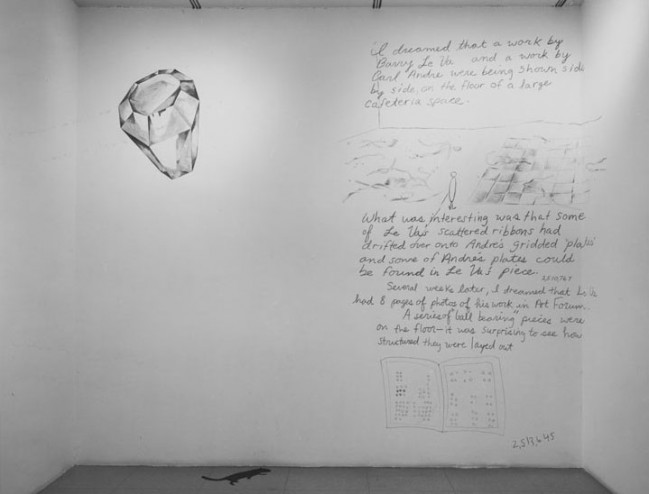 I dreamed that a work by
Barry Le Va and a work by
Carl Andre were being shown side
by side on the floor of a large
cafeteria space.
What was interesting was that some
of Le Va's scattered ribbons had
drifted over onto Andre's gridded 'plates'
and some of Andre's plates could
be found in Le Va's piece.
Several weeks later, I dreamed that
had 8 pages of photos of his work in Art Forum.
A series of "ball bearing" pieces were
on the floor—it was surprising to see how
structured they were layed out